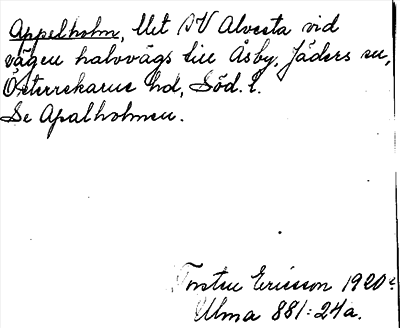 Appelholm, litet NV Alvesta vid
vägen halvvägs till Åsby, Jäders sn,
Österrekarne hd, Söd. l.
Se Apalholmen.
Torsten Ericsson 1920 t
Ulma 881:24a.